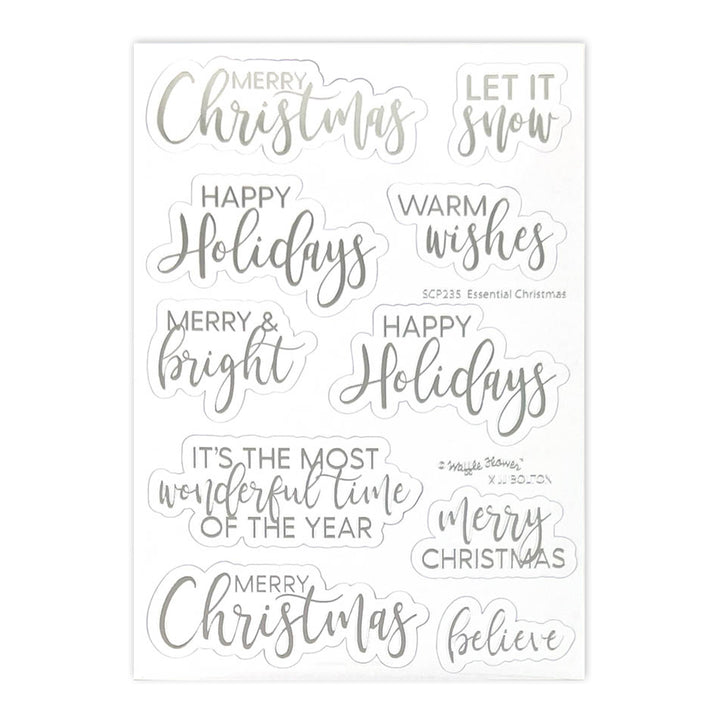 MERRY
Christmas
LET IT
snow
HAPPY
Holidays
WARM
wishes
SCP235 Essential Christmas
MERRY &
bright
HAPPY
Holidays
IT'S THE MOST
wonderful time
OF THE YEAR
© Waffle Flower™
X JJ BOLTON
merry
CHRISTMAS
MERRY
Christmas
believe